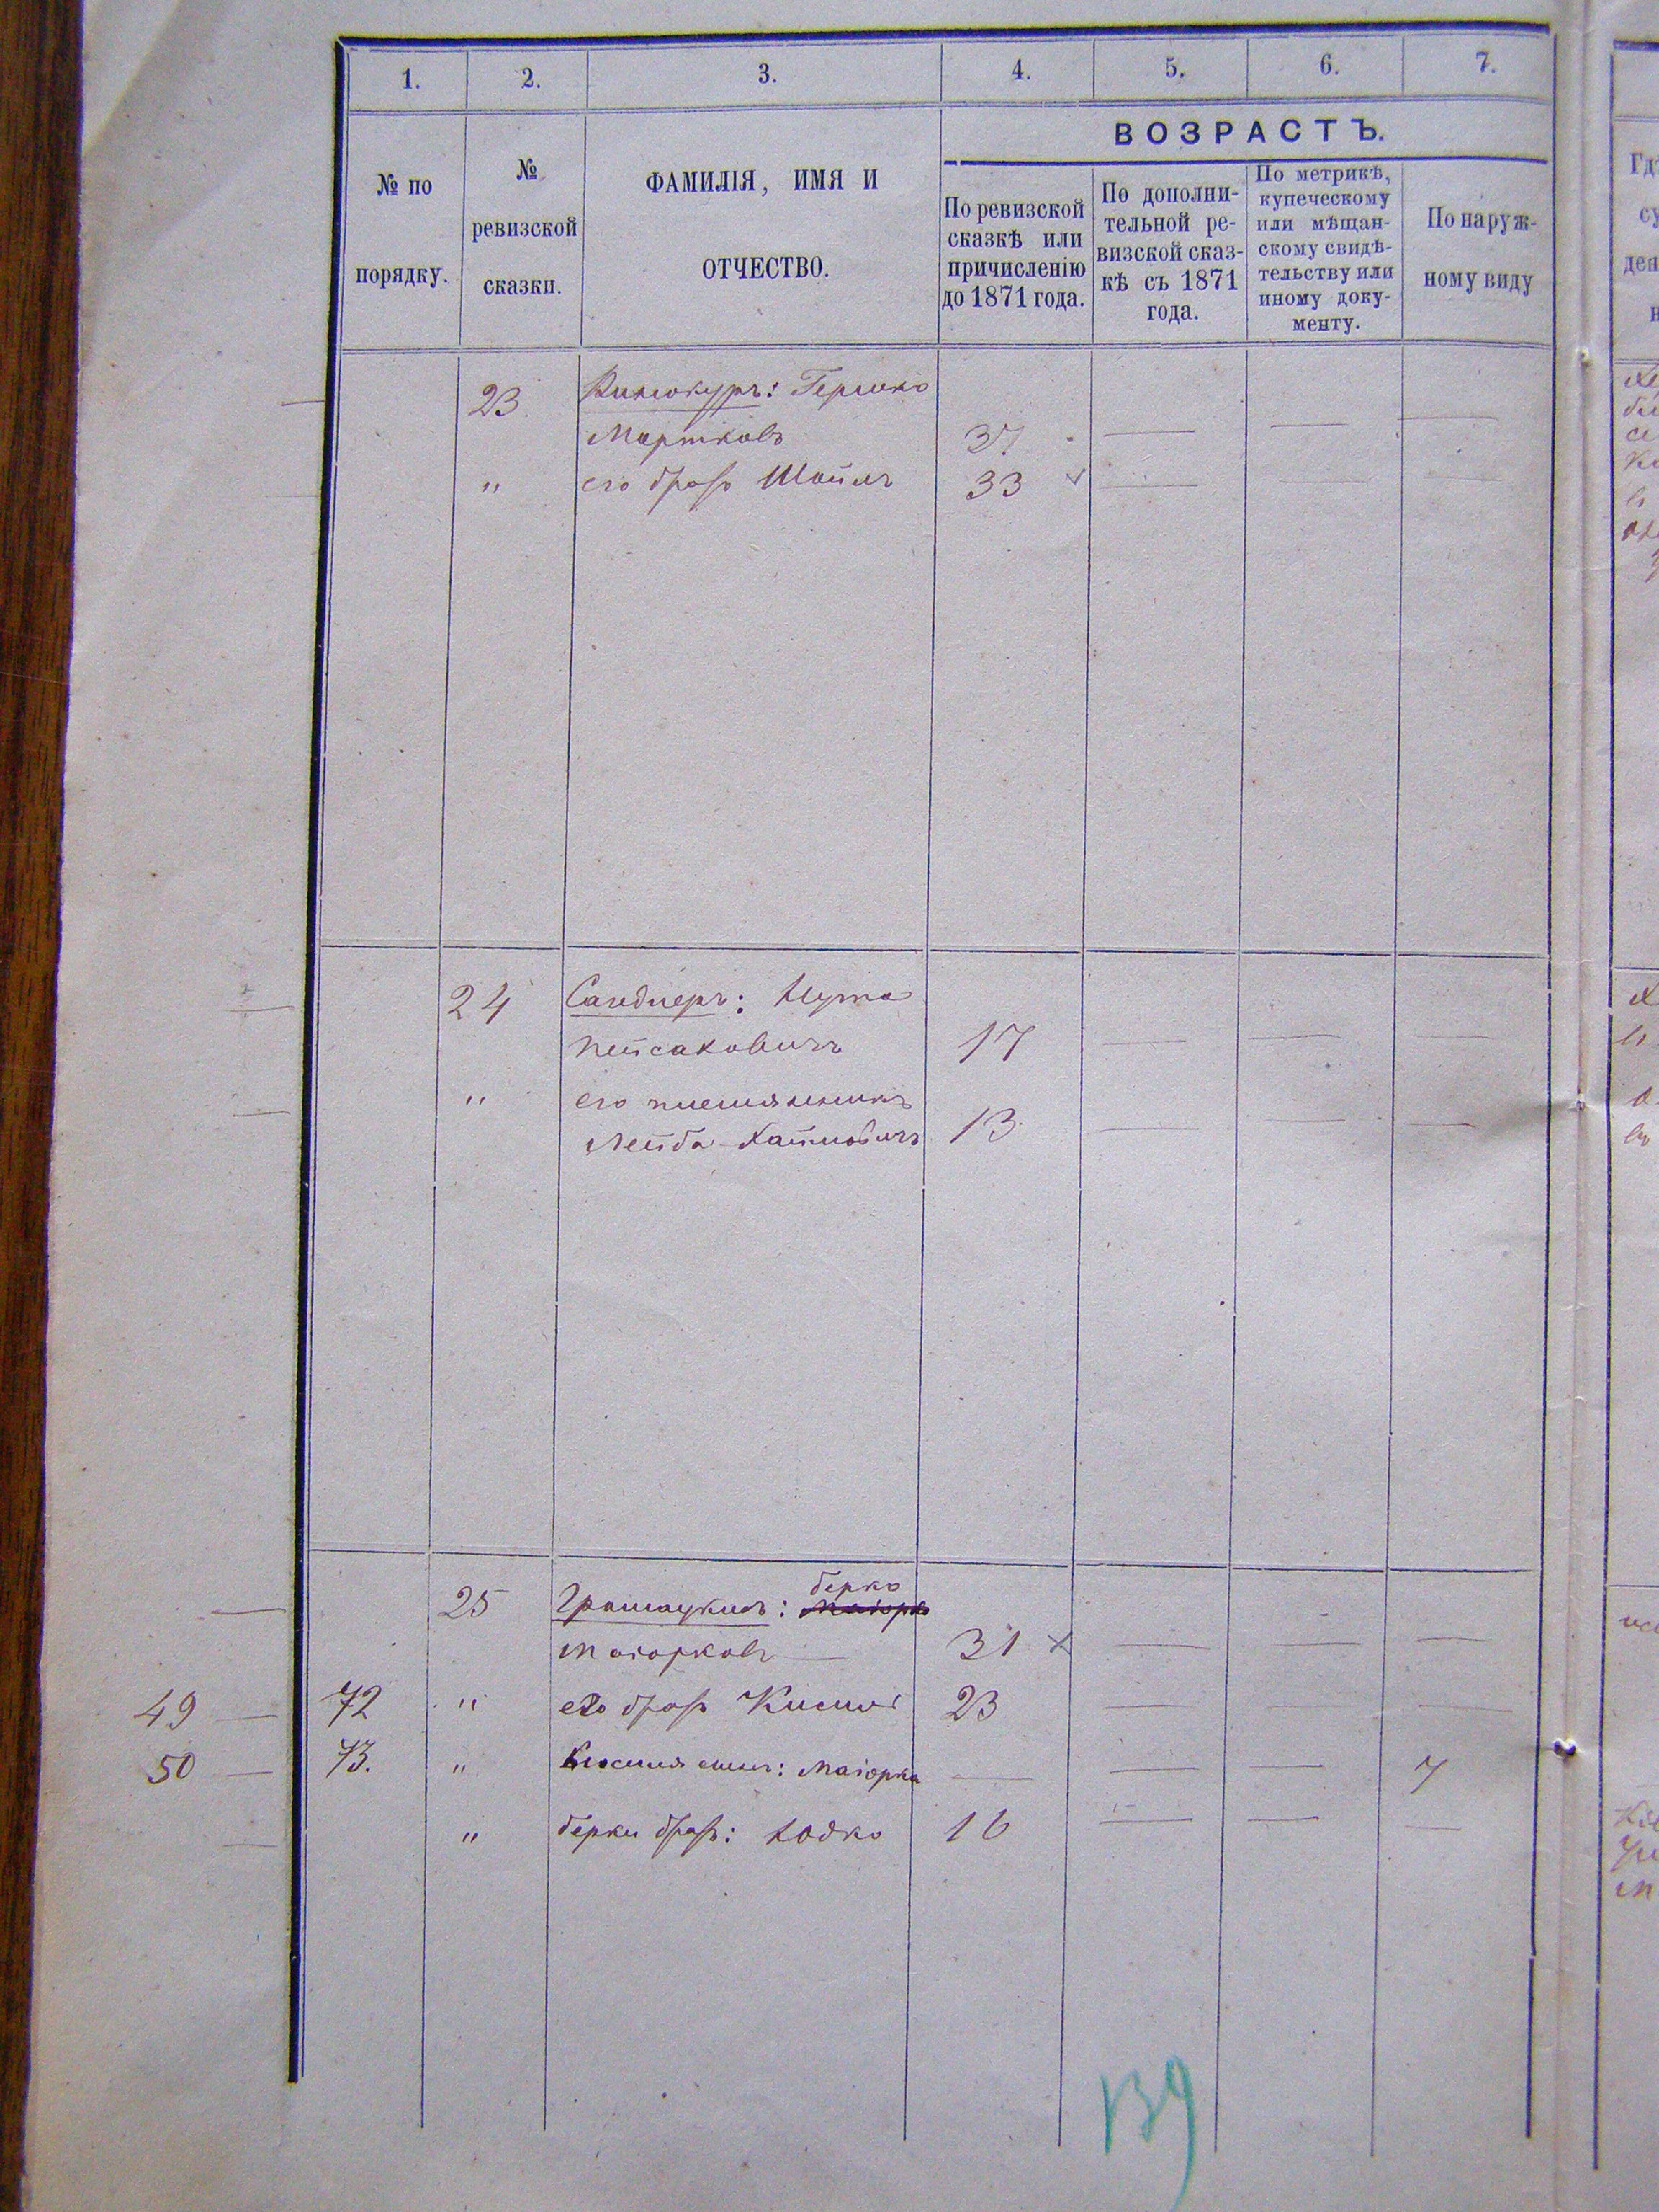 1. 2. 3. 4. 5. 6. 7.
№ по порядку.
№ ревизской сказки.
ФАМИЛІЯ, ИМЯ И ОТЧЕСТВО.
ВОЗРАСТЪ.
По ревизской сказкѣ или причисленію до 1871 года.
По дополнительной ревизской сказкѣ съ 1871 года.
По метрикѣ, купеческому или мѣщанскому свидѣтельству или иному документу.
По наружному виду
23 Винокуръ: Гершко
Мортковъ 37 — — —
" его братъ Шоилъ 33 — — —
24 Сандлеръ: Нута
Пейсаковичъ 17 — — —
" его племянникъ
Лейба Хаимовичъ 13 — — —
25 Берко
Маіорко
Маіорковъ — 31 × — — —
49 — 72 " его братъ 23 — — —
50 — 73. " сынъ: Маіорка — — — 7
" Берки братъ: Іодко 16 — — —
139